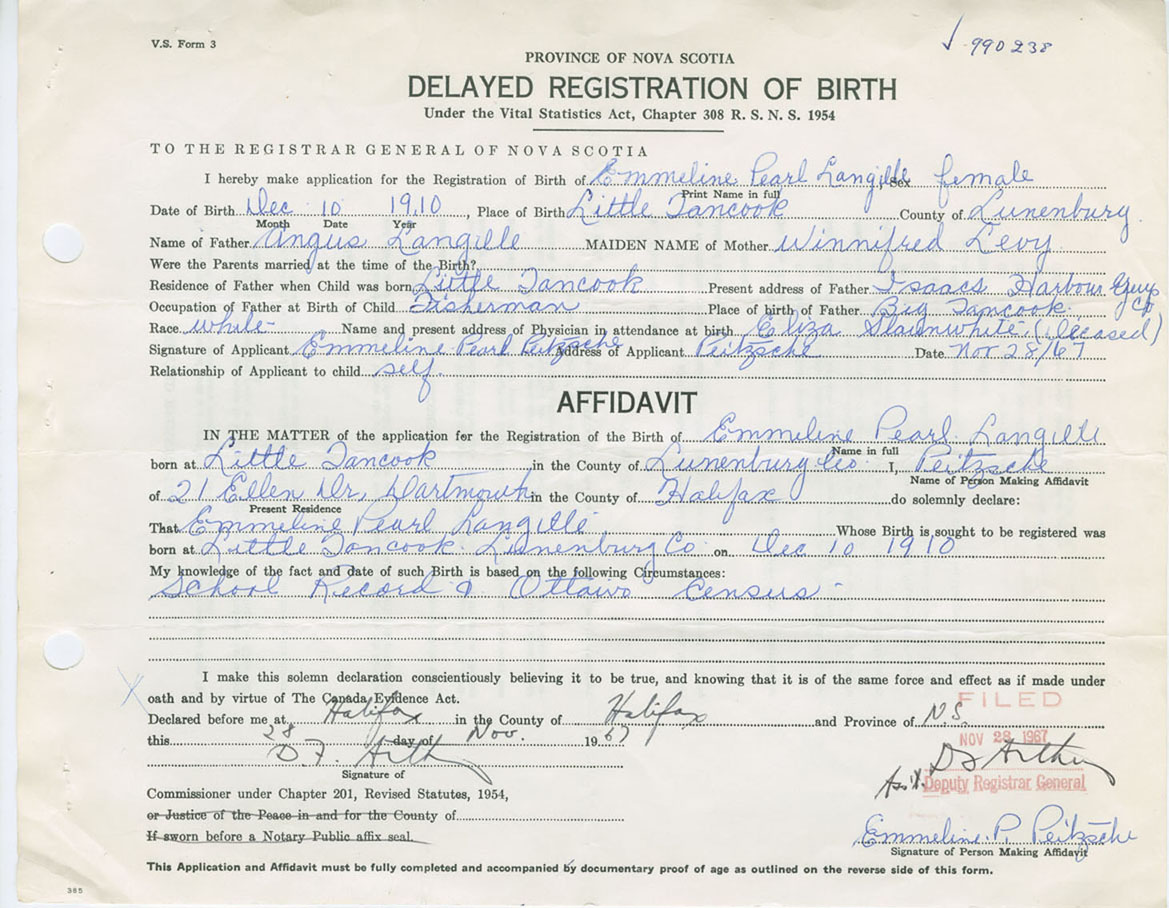 V.S. Form 3
990238
PROVINCE OF NOVA SCOTIA
DELAYED REGISTRATION OF BIRTH
Under the Vital Statistics Act, Chapter 308 R. S. N. S. 1954
TO THE REGISTRAR GENERAL OF NOVA SCOTIA
I hereby make application for the Registration of Birth of Emmeline Pearl Langille Sex female
Print Name in full
Date of Birth Dec 10 1910, Place of Birth Little Tancook County of Lunenburg
Month Date Year
Name of Father Angus Langille MAIDEN NAME of Mother Winnifred Levy
Were the Parents married at the time of the Birth?
Residence of Father when Child was born Little Tancook Present address of Father Isaacs Harbour Guys Co
Occupation of Father at Birth of Child Fisherman Place of birth of Father Big Tancook
Race white Name and present address of Physician in attendance at birth Eliza Slaunwhite (deceased)
Signature of Applicant Emmeline Pearl Peitzsche Address of Applicant Peitzsche Date Nov 28/67
Relationship of Applicant to child self.
AFFIDAVIT
IN THE MATTER of the application for the Registration of the Birth of Emmeline Pearl Langille
Name in full
born at Little Tancook in the County of Lunenburg Co. I, Peitzsche
Name of Person Making Affidavit
of 21 Ellen Dr, Dartmouth in the County of Halifax do solemnly declare:
Present Residence
That Emmeline Pearl Langille Whose Birth is sought to be registered was
born at Little Tancook Lunenburg Co. on Dec 10 1910
My knowledge of the fact and date of such Birth is based on the following Circumstances:
School Record & Ottawa Census -
I make this solemn declaration conscientiously believing it to be true, and knowing that it is of the same force and effect as if made under
oath and by virtue of The Canada Evidence Act.
FILED
Declared before me at Halifax in the County of Halifax and Province of N.S.
this 28 day of Nov. 1967
NOV 28 1967
D. F. Arthur
Signature of
Ass't. Deputy Registrar General
Commissioner under Chapter 201, Revised Statutes, 1954,
or Justice of the Peace in and for the County of
If sworn before a Notary Public affix seal.
Emmeline P. Peitzsche
Signature of Person Making Affidavit
This Application and Affidavit must be fully completed and accompanied by documentary proof of age as outlined on the reverse side of this form.
385